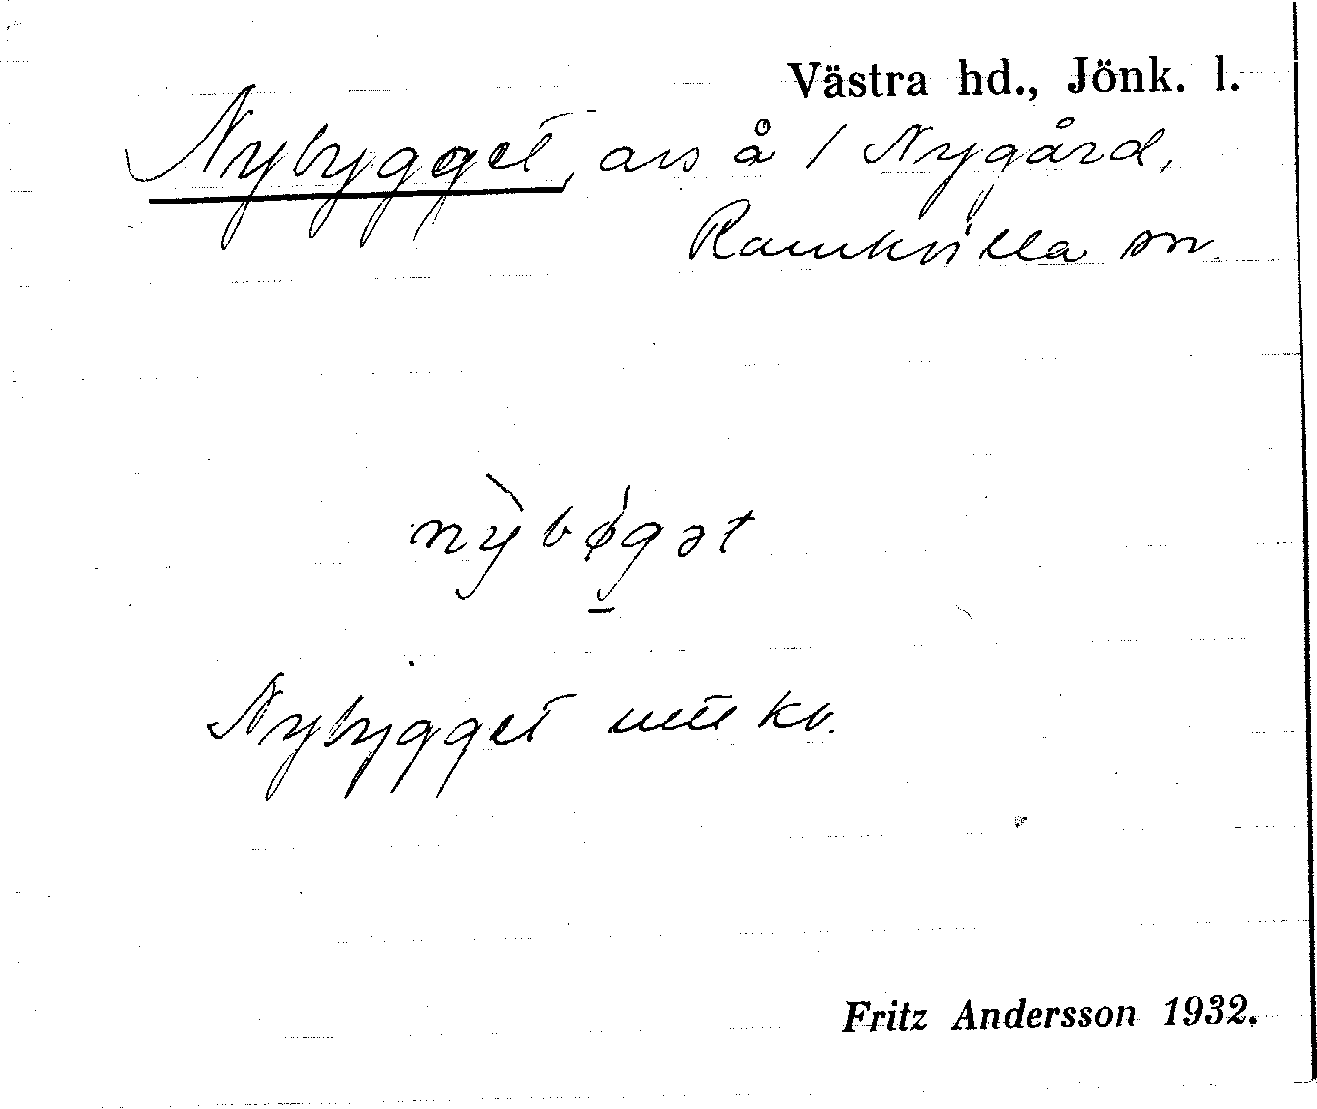 Västra hd., Jönk. l.
Nybygget, avs å / Nygård,
Ramkvilla sn.
nỳbǿgət
Nybygget kv.
Fritz Andersson 1932.